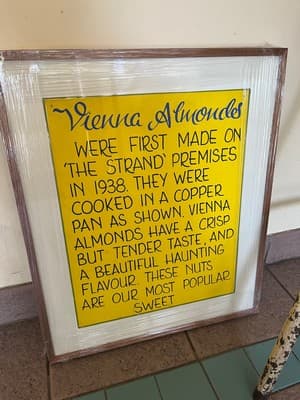 Vienna Almonds
WERE FIRST MADE ON
'THE STRAND' PREMISES
IN 1938. THEY WERE
COOKED IN A COPPER
PAN AS SHOWN. VIENNA
ALMONDS HAVE A CRISP
BUT TENDER TASTE, AND
A BEAUTIFUL HAUNTING
FLAVOUR. THESE NUTS
ARE OUR MOST POPULAR
SWEET